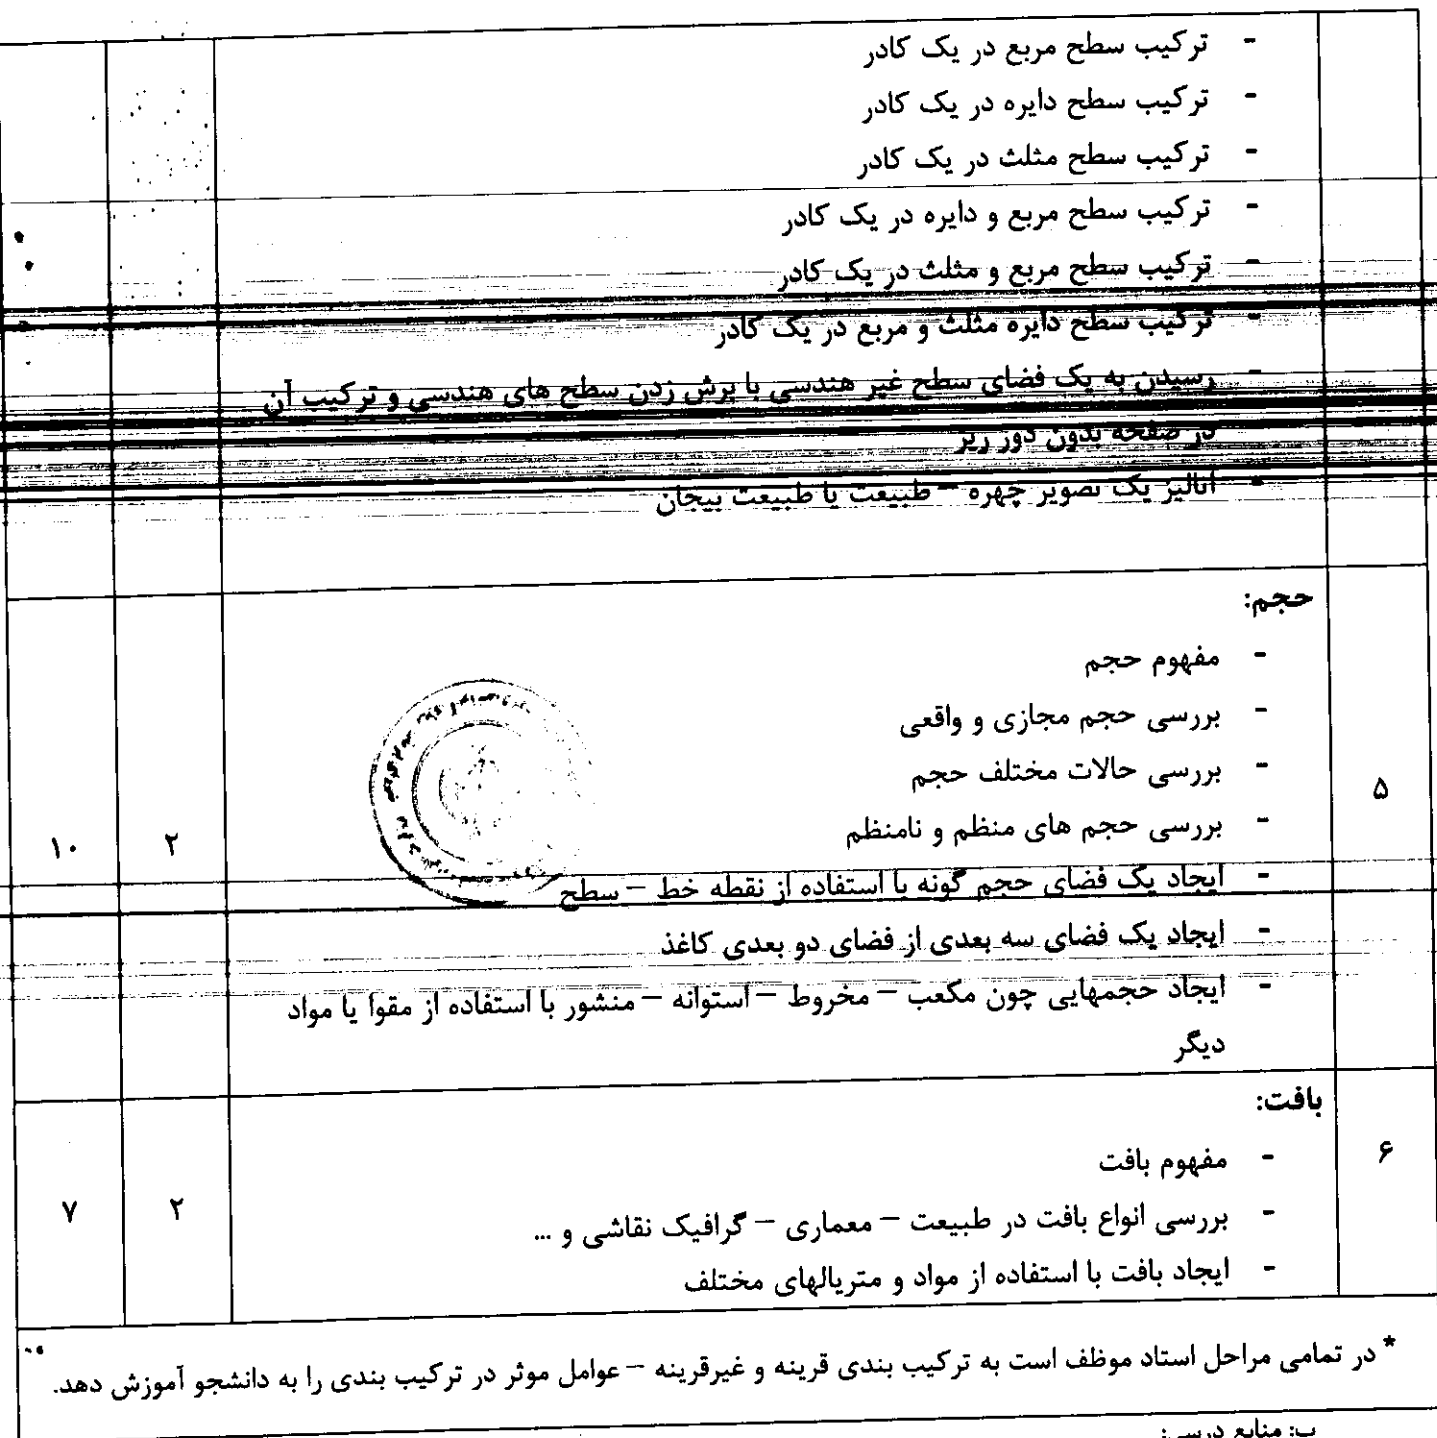 - ترکیب سطح مربع در یک کادر
- ترکیب سطح دایره در یک کادر
- ترکیب سطح مثلث در یک کادر
- ترکیب سطح مربع و دایره در یک کادر
- ترکیب سطح مربع و مثلث در یک کادر
- ترکیب سطح دایره مثلث و مربع در یک کادر
- رسیدن به یک فضای سطح غیر هندسی با برش زدن سطح های هندسی و ترکیب آن
در صفحه بدون دور ریز
- آنالیز یک تصویر چهره – طبیعت یا طبیعت بیجان
حجم:
- مفهوم حجم
- بررسی حجم مجازی و واقعی
- بررسی حالات مختلف حجم
۵
- بررسی حجم های منظم و نامنظم
۲
۱۰
- ایجاد یک فضای حجم گونه با استفاده از نقطه خط – سطح
- ایجاد یک فضای سه بعدی از فضای دو بعدی کاغذ
- ایجاد حجمهایی چون مکعب – مخروط – استوانه – منشور با استفاده از مقوا یا مواد
دیگر
بافت:
۶
- مفهوم بافت
- بررسی انواع بافت در طبیعت – معماری – گرافیک نقاشی و ...
۲
۷
- ایجاد بافت با استفاده از مواد و متریالهای مختلف
* در تمامی مراحل استاد موظف است به ترکیب بندی قرینه و غیرقرینه – عوامل موثر در ترکیب بندی را به دانشجو آموزش دهد.
ب: منابع درسی: